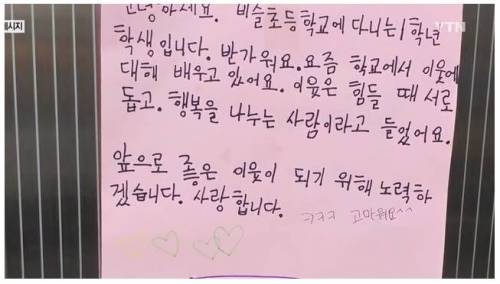 메시지
YTN
안녕하세요. 비슬초등학교에 다니는 1학년
학생입니다. 반가워요. 요즘 학교에서 이웃에
대해 배우고 있어요. 이웃은 힘들 때 서로
돕고. 행복을 나누는 사람이라고 들었어요.
앞으로 좋은 이웃이 되기 위해 노력하
겠습니다. 사랑합니다. ㅋㅋㅋ 고마워요^^